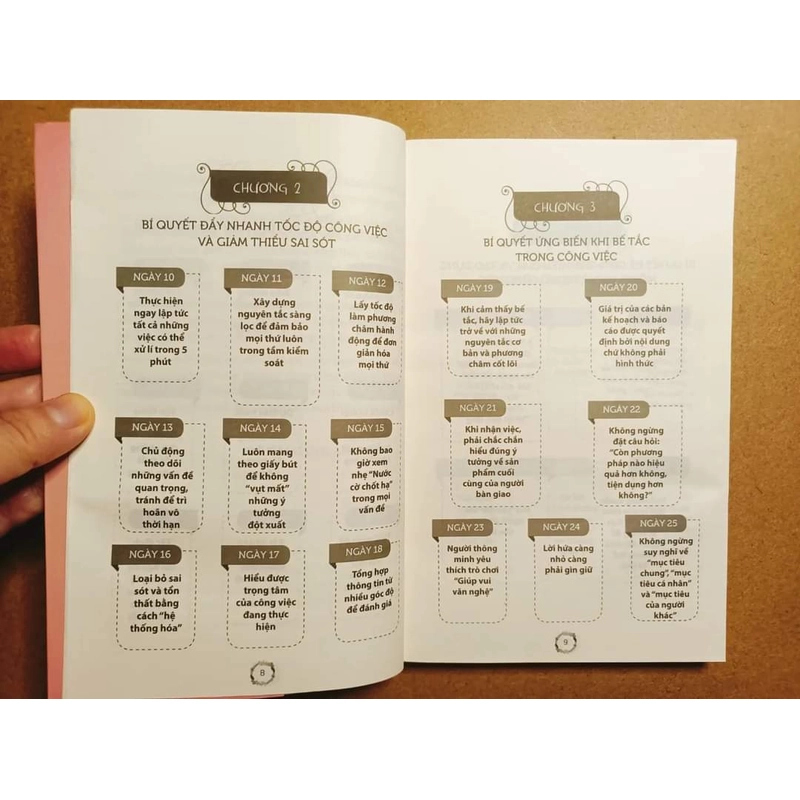 CHƯƠNG 2
BÍ QUYẾT ĐẨY NHANH TỐC ĐỘ CÔNG VIỆC
VÀ GIẢM THIỂU SAI SÓT
NGÀY 10
Thực hiện
ngay lập tức
tất cả những
việc có thể
xử lí trong 5
phút
NGÀY 11
Xây dựng
nguyên tắc sàng
lọc để đảm bảo
mọi thứ luôn
trong tầm kiểm
soát
NGÀY 12
Lấy tốc độ
làm phương
châm hành
động để đơn
giản hóa
mọi thứ
NGÀY 13
Chủ động
theo dõi
những vấn đề
quan trọng,
tránh để trì
hoãn vô
thời hạn
NGÀY 14
Luôn mang
theo giấy bút
để không
"vụt mất"
những ý
tưởng
đột xuất
NGÀY 15
Không bao
giờ xem
nhẹ "Nước
cờ chốt hạ"
trong mọi
vấn đề
NGÀY 16
Loại bỏ sai
sót và tổn
thất bằng
cách "hệ
thống hóa"
NGÀY 17
Hiểu được
trọng tâm
của công việc
đang thực
hiện
NGÀY 18
Tổng hợp
thông tin từ
nhiều góc độ
để đánh giá
8
CHƯƠNG 3
BÍ QUYẾT ỨNG BIẾN KHI BẾ TẮC
TRONG CÔNG VIỆC
NGÀY 19
Khi cảm thấy bế
tắc, hãy lập tức
trở về với những
nguyên tắc cơ
bản và phương
châm cốt lõi
NGÀY 20
Giá trị của các bản
kế hoạch và báo
cáo được quyết
định bởi nội dung
chứ không phải
hình thức
NGÀY 21
Khi nhận việc,
phải chắc chắn
hiểu đúng ý
tưởng về sản
phẩm cuối
cùng của người
bàn giao
NGÀY 22
Không ngừng
đặt câu hỏi:
"Còn phương
pháp nào hiệu
quả hơn không,
tiện dụng hơn
không?"
NGÀY 23
Người thông
minh yêu
thích trò chơi
"Giúp vui
văn nghệ"
NGÀY 24
Lời hứa càng
nhỏ càng
phải gìn giữ
NGÀY 25
Không ngừng
suy nghĩ về
"mục tiêu
chung", "mục
tiêu cá nhân"
và "mục tiêu
của người
khác"
9